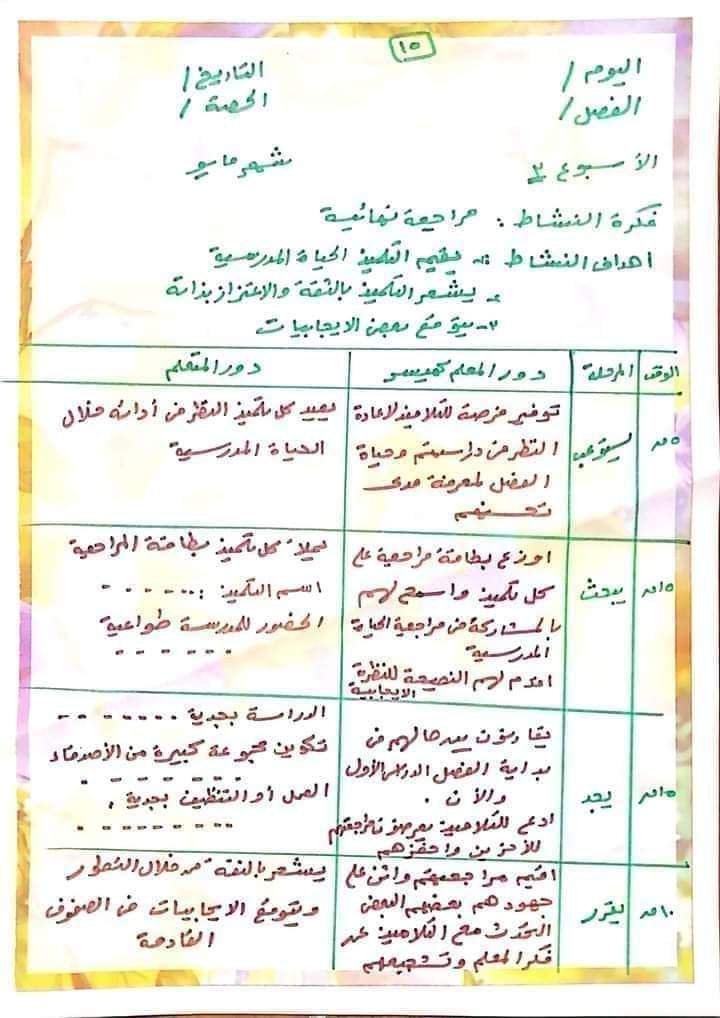 ١٥
اليوم / التاريخ /
الفصل / الحصة /
الأسبوع ٣ شهر مايو
فكرة النشاط : مراجعة نهائية
أهداف النشاط :- يقيم التلميذ الحياة المدرسية
٢- يشعر التلميذ بالثقة والاعتزاز بذاته
٣- يتوقع بعض الايجابيات
الوقت المرحلة دور المعلم كميسر دور المتعلم
٥ د يستوعب
توفير فرصة للتلاميذ لاعادة
النظر فى دراستهم وحياة
الفصل لمعرفة مدى
تحسنهم
يعيد كل تلميذ النظر فى أدائه خلال
الحياة المدرسية
١٥ د يبحث
اوزع بطاقة مراجعية على
كل تلميذ واسمح لهم
بالمشاركة فى مراجعة الحياة
المدرسية
اقدم لهم النصيحة للنظرة
الايجابية
يملأ كل تلميذ بطاقة المراجعة
اسم التلميذ : .......
الحضور للمدرسة طواعية
.......
١٥ د يجد
يقارنون بين حالهم فى
بداية الفصل الدراسى الأول
والآن .
ادع للتلاميذ بعرض مراجعتهم
للآخرين واحفزهم
الدراسة بجدية ........
تكوين مجموعة كبيرة من الأصدقاء
.......
العمل أو التنظيف بجدية :
........
١٠ د يقرر
اقيم مراجعتهم واثنى على
جهودهم بعضهم البعض
التحدث مع التلاميذ عن
فكر المعلم وتشجيعهم
يشعر بالثقة من خلال التطور
ويتوقع الايجابيات فى الصفوف
القادمة